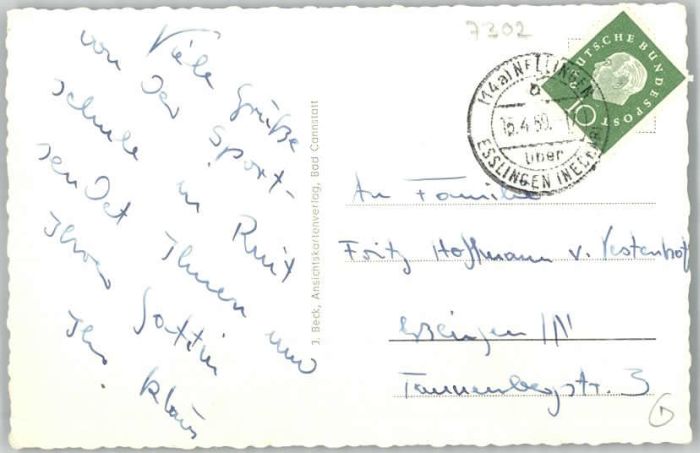 7302
(14a) NELLINGEN
b
15.4.60.
über
ESSLINGEN (NECKAR)
DEUTSCHE BUNDESPOST
10
Viele Grüße
von der Sport-
schule in Ruit
sendet Ihnen und
Ihrer Gattin
Ihr Klaus
J. Beck, Ansichtskartenverlag, Bad Cannstatt
An Familie
Fritz Hoffmann v. Vestenhof
Esslingen/N
Tannenbergstr. 3